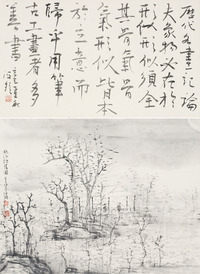 歷代名畫記論
夫象物必在於
形似形似須全
其骨氣骨
氣形似皆本
於立意而
歸乎用筆
古工畫者多
善書